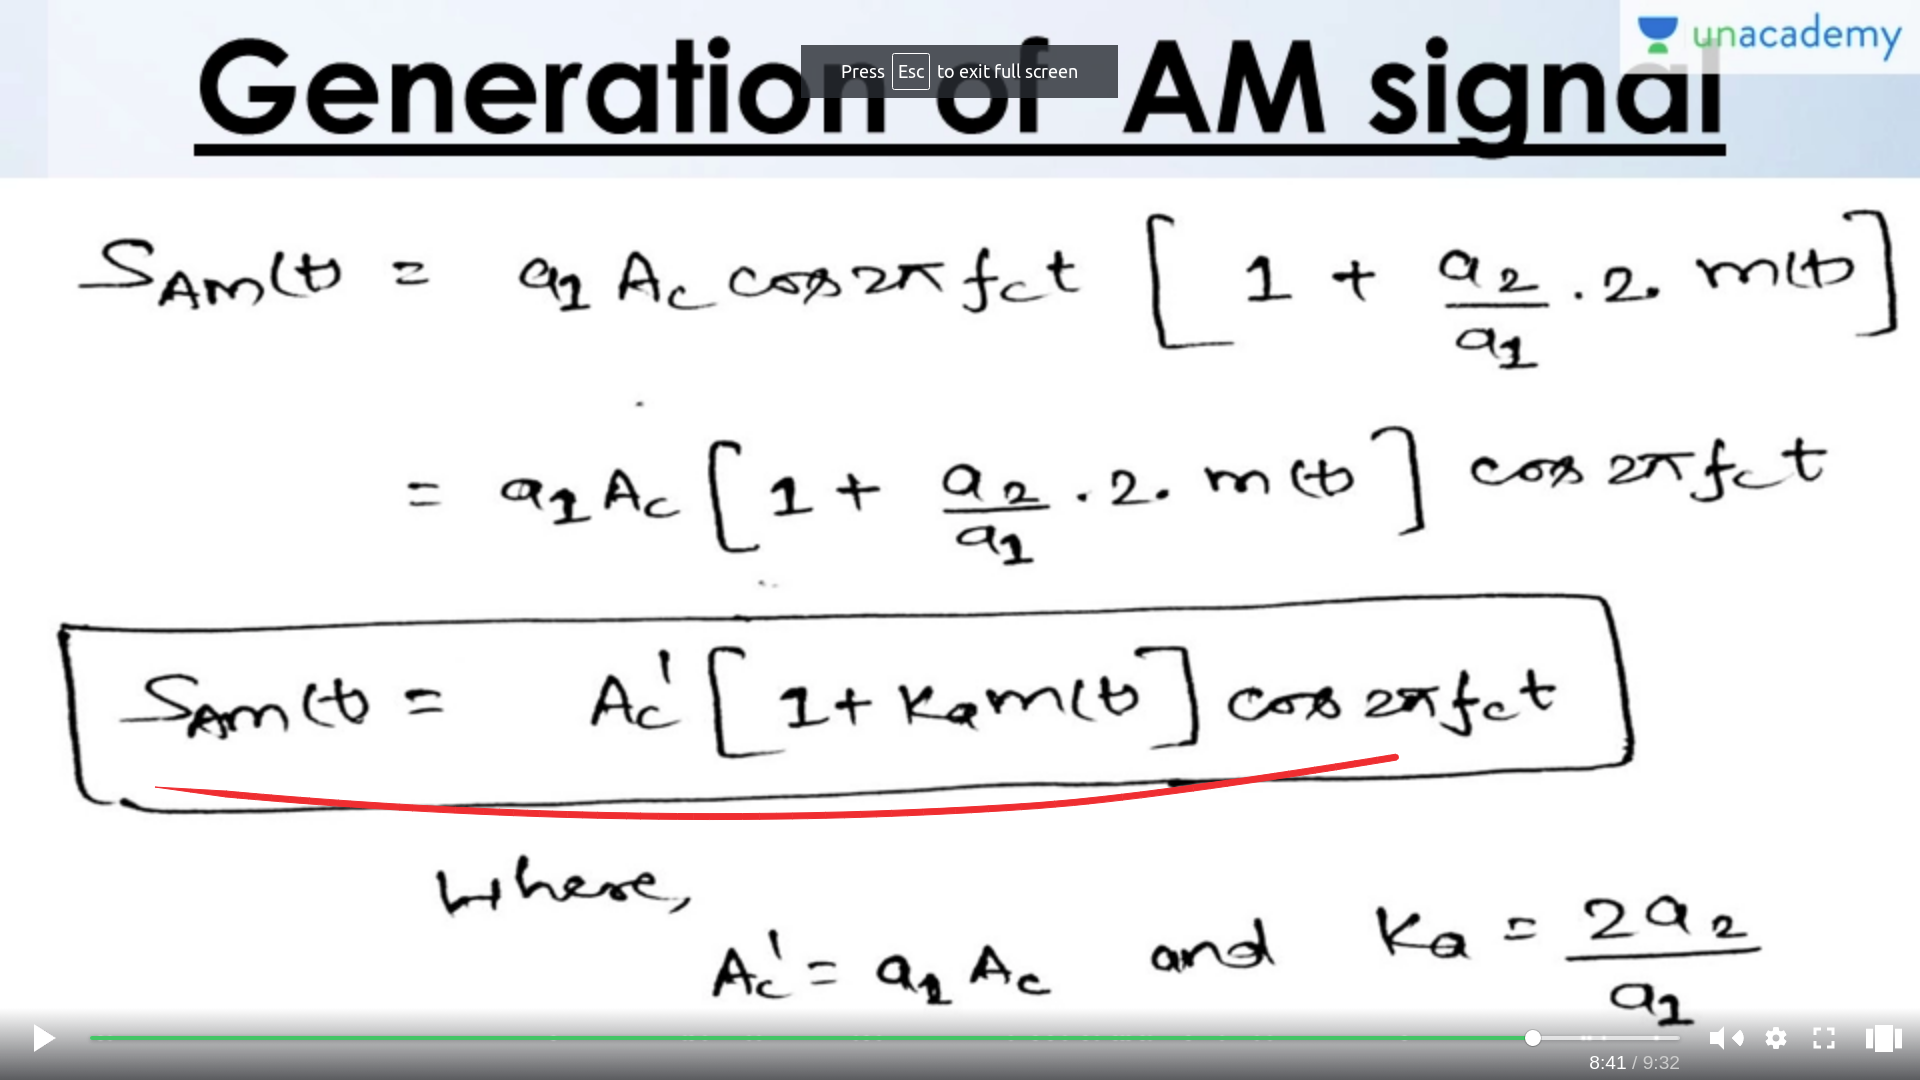 unacademy
Generation of AM signal
Press Esc to exit full screen
S_AM(t) = a_1 A_c cos 2π f_c t [ 1 + a_2/a_1 . 2. m(t) ]
= a_1 A_c [ 1 + a_2/a_1 . 2. m(t) ] cos 2π f_c t
S_AM(t) = A_c' [ 1 + K_a m(t) ] cos 2π f_c t
Where,
A_c' = a_1 A_c and K_a = 2a_2/a_1
8:41 / 9:32